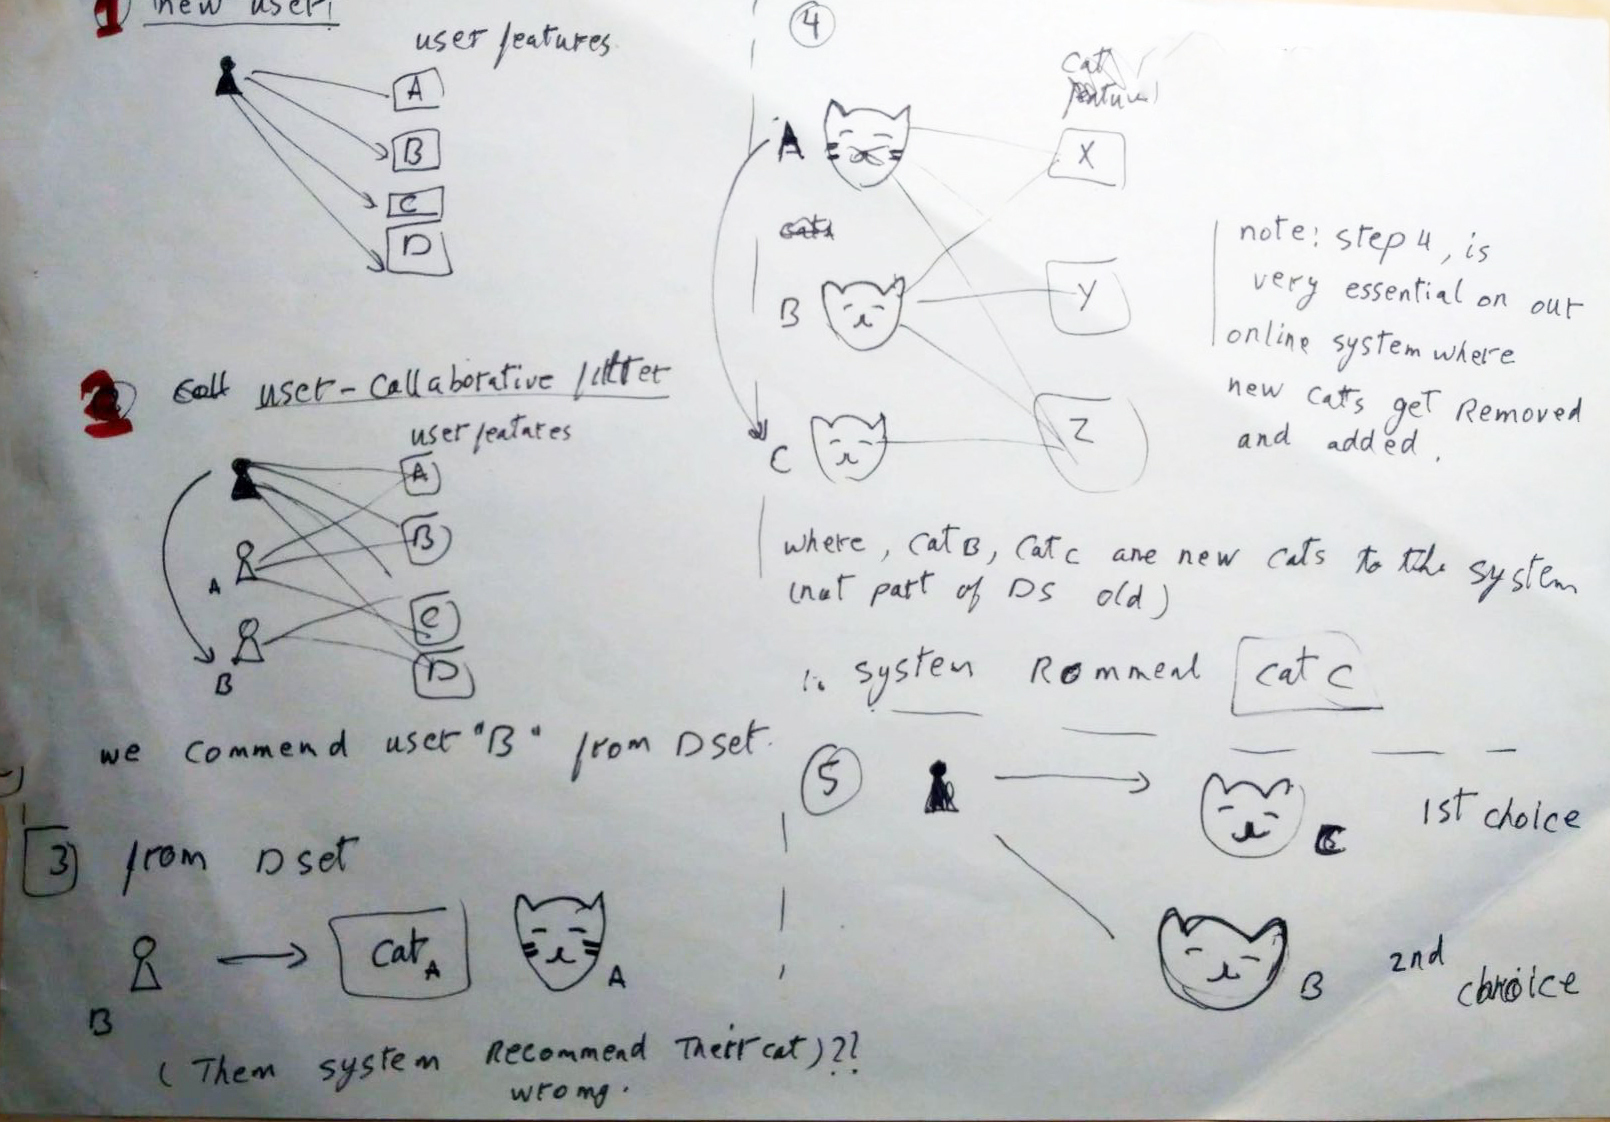 1 new user!
user features
A
B
C
D
2 user-Collaborative filter
user featates
A
B
C
D
A
B
we commend user "B" from Dset.
3 from Dset
cat A
A
B
(Them system Recommend Their cat)??
wrong.
4
cat
A
X
cats
B
Y
C
Z
note: step 4, is
very essential on our
online system where
new cats get Removed
and added.
where, cat B, Cat C are new cats to the system
(not part of DS old)
system Rommeal cat C
5
C
1st choice
B
2nd
choice